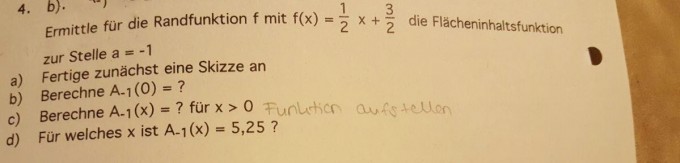 4. b).
Ermittle für die Randfunktion f mit f(x) = 1/2 x + 3/2 die Flächeninhaltsfunktion
zur Stelle a = -1
a) Fertige zunächst eine Skizze an
b) Berechne A-1(0) = ?
c) Berechne A-1(x) = ? für x > 0 Funktion aufstellen
d) Für welches x ist A-1(x) = 5,25 ?